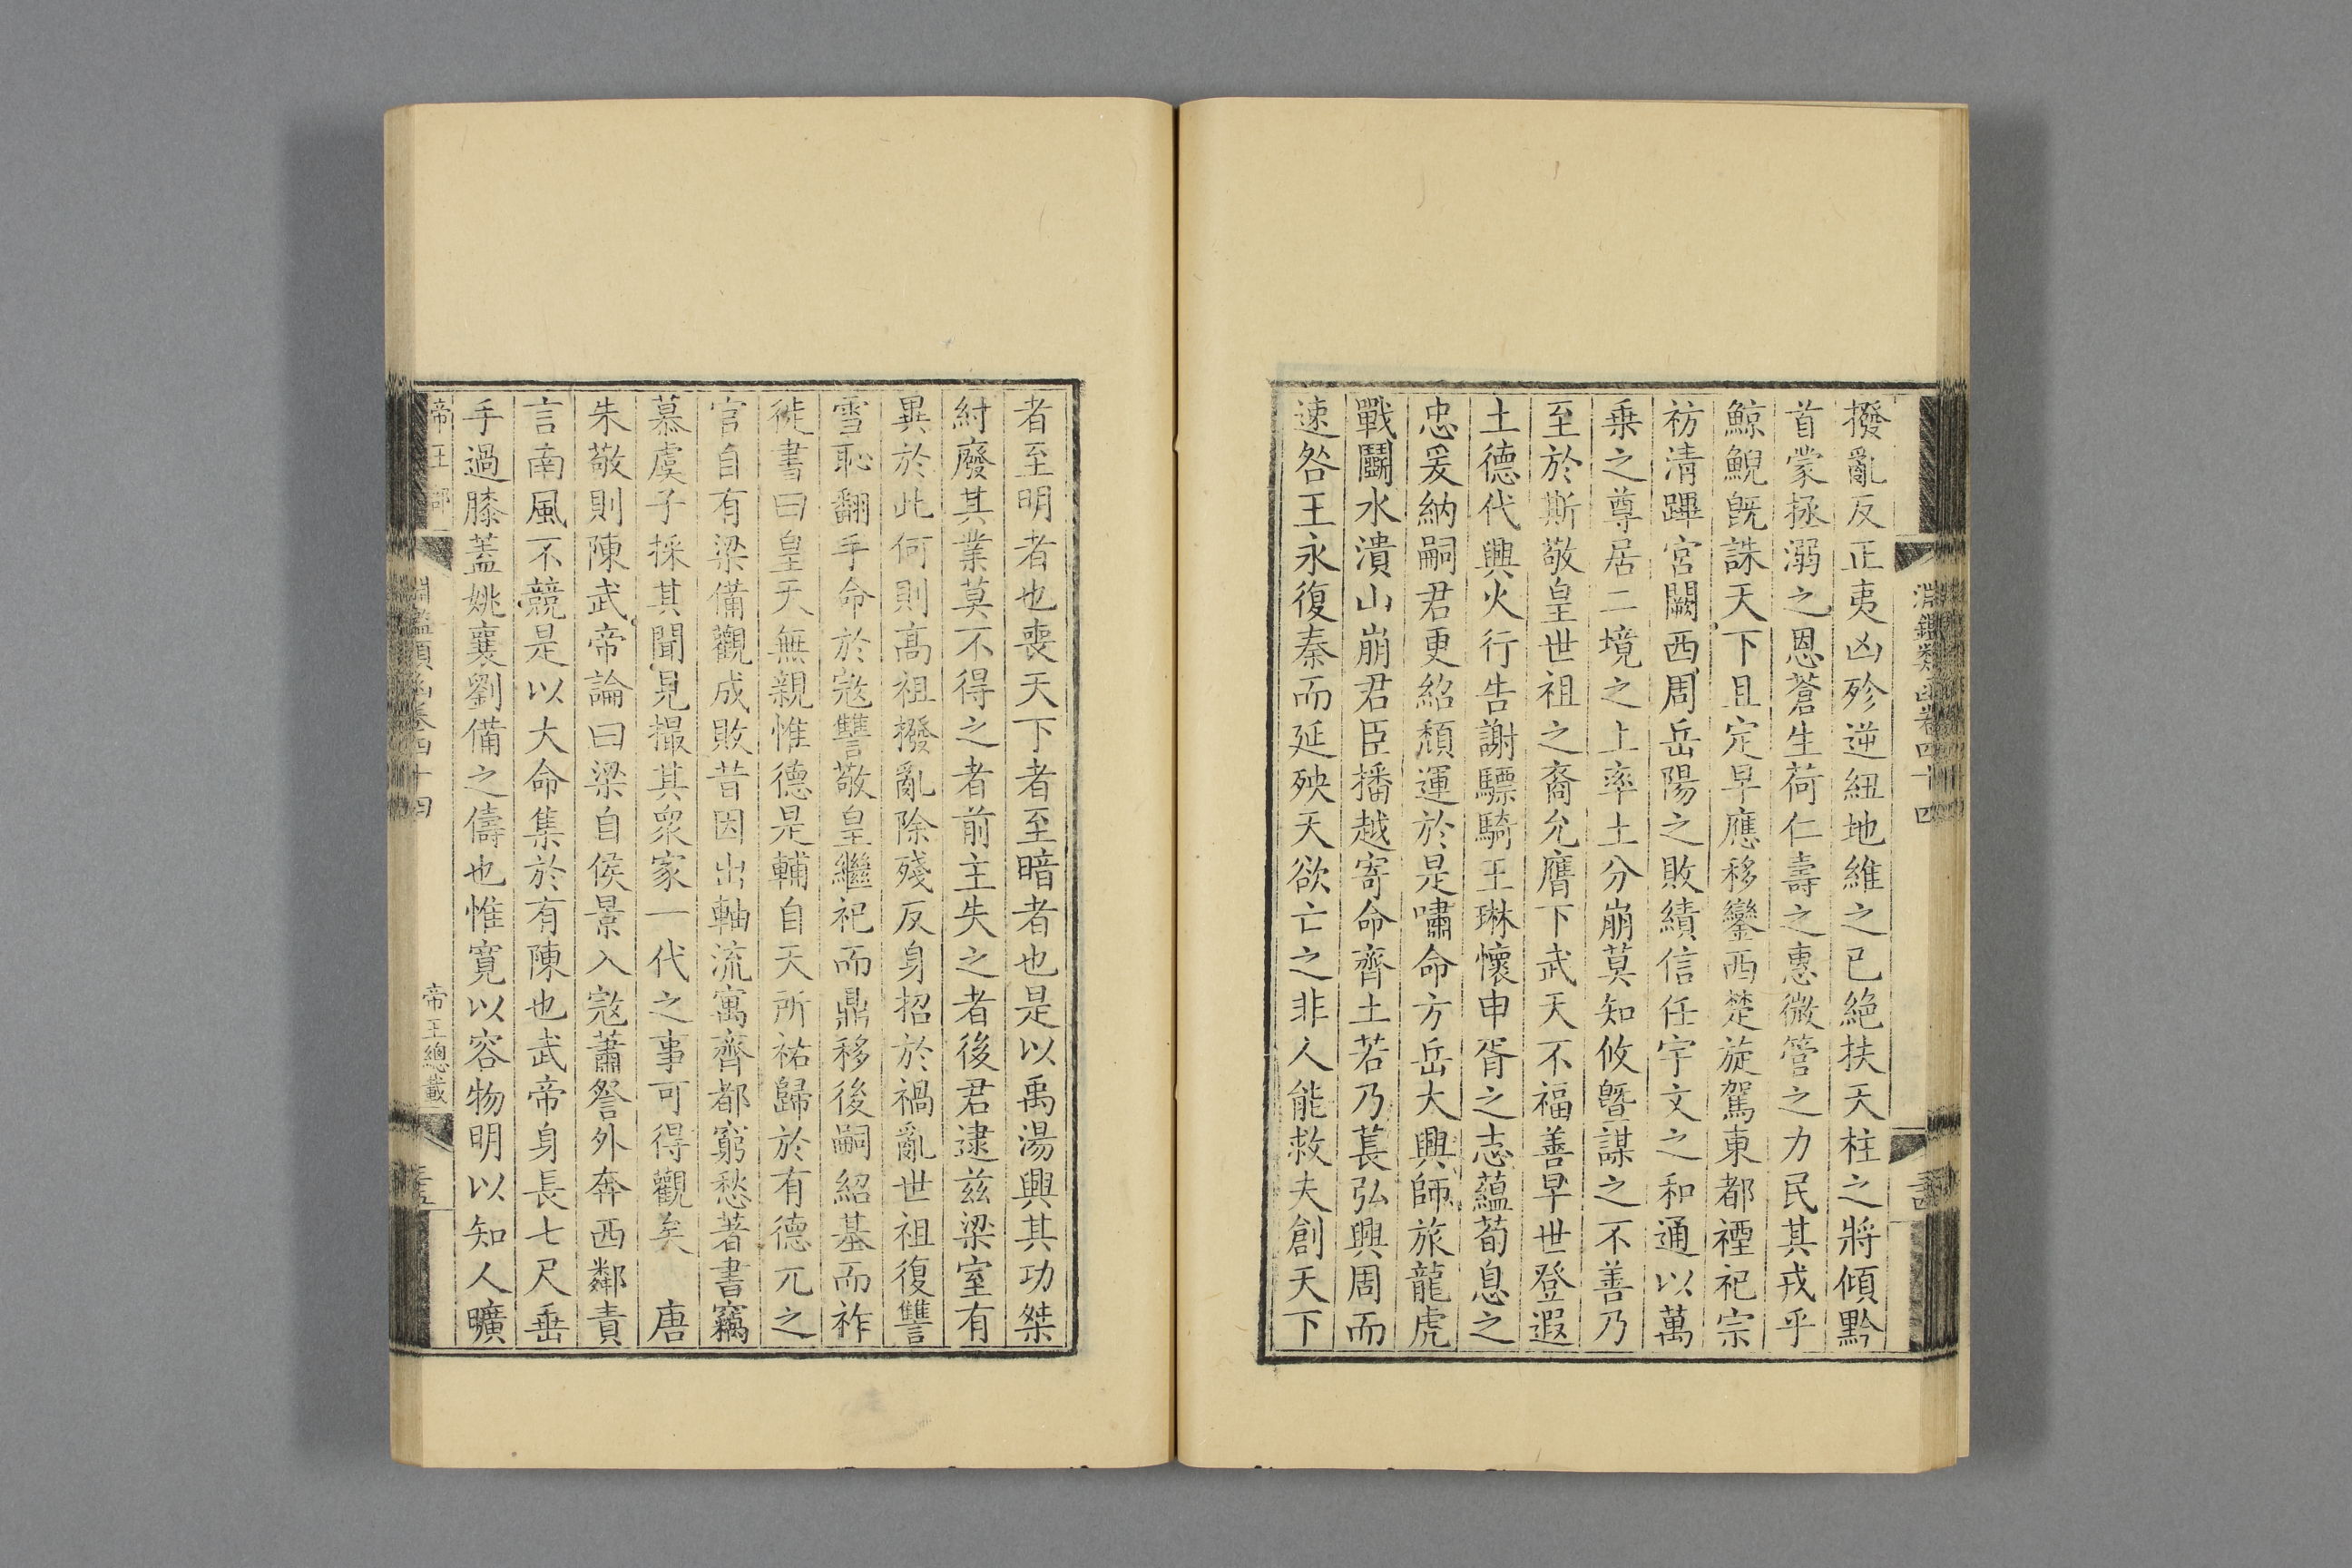 撥亂反正夷凶殄逆紐地維之已絕扶天柱之將傾黔
首蒙拯溺之恩蒼生荷仁壽之惠微管之力民其戎乎
鯨鯢旣誅天下且定早應移鑾西楚旋駕東都禋祀宗
祊清蹕宮闕西周岳陽之敗績信任宇文之和通以萬
乗之尊居二境之上率土分崩莫知攸曁謀之不善乃
至於斯敬皇世祖之裔允膺下武天不福善早世登遐
土德代興火行告謝驃騎王琳懷申胥之志蘊荀息之
忠爰納嗣君更紹頽運於是嘯命方岳大興師旅龍虎
戰鬭水潰山崩君臣播越寄命齊土若乃萇弘興周而
速咎王永復秦而延殃天欲亡之非人能救夫創天下
淵鑑類函卷四十四
者至明者也喪天下者至暗者也是以禹湯興其功桀
紂廢其業莫不得之者前主失之者後君逮兹梁室有
異於此何則高祖撥亂除殘反身招於禍亂世祖復讐
雪恥翻手命於寇讐敬皇繼祀而鼎移後嗣紹基而祚
徙書曰皇天無親惟德是輔自天所祐歸於有德兀之
官自有梁備觀成敗昔因出軸流寓齊都窮愁著書竊
慕虞子採其聞見撮其衆家一代之事可得觀矣　唐
朱敬則陳武帝論曰梁自侯景入寇蕭詧外奔西鄰責
言南風不競是以大命集於有陳也武帝身長七尺垂
手過膝蓋姚襄劉備之儔也惟寬以容物明以知人曠
帝王部　淵鑑類函卷四十四　帝王總載